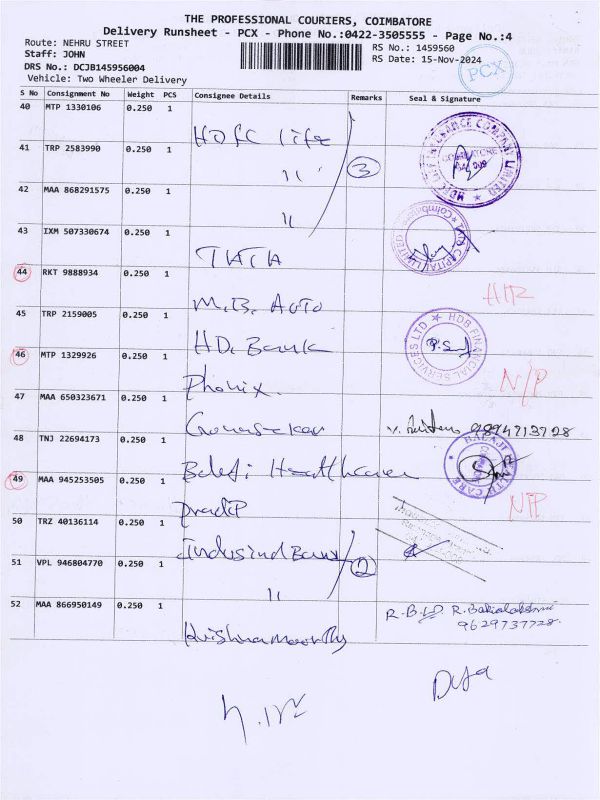 THE PROFESSIONAL COURIERS, COIMBATORE
Delivery Runsheet - PCX - Phone No.:0422-3505555 - Page No.:4
Route: NEHRU STREET
RS No.: 1459560
Staff: JOHN
RS Date: 15-Nov-2024
PCX
DRS No.: DCJB145956004
Vehicle: Two Wheeler Delivery
S No Consignment No Weight PCS Consignee Details Remarks Seal & Signature
40 MTP 1330106 0.250 1 HDFC life
41 TRP 2583990 0.250 1 " 3
42 MAA 868291575 0.250 1 "
43 IXM 507330674 0.250 1 TATA
44 RKT 9888934 0.250 1 M.B. Auto
45 TRP 2159005 0.250 1 HD. Bank HDB FINANCIAL SERVICES LTD
46 MTP 1329926 0.250 1 Phonix. N/P
47 MAA 650323671 0.250 1 Gunasekar 9894713728
48 TNJ 22694173 0.250 1 Balaji Healthcare BALAJI HEALTH CARE
49 MAA 945253505 0.250 1 Pradip N/P
50 TRZ 40136114 0.250 1 Indusind Bank
51 VPL 946804770 0.250 1 " 2
52 MAA 866950149 0.250 1 Krishnamoorthy R. Bakialakshmi
9629737728.